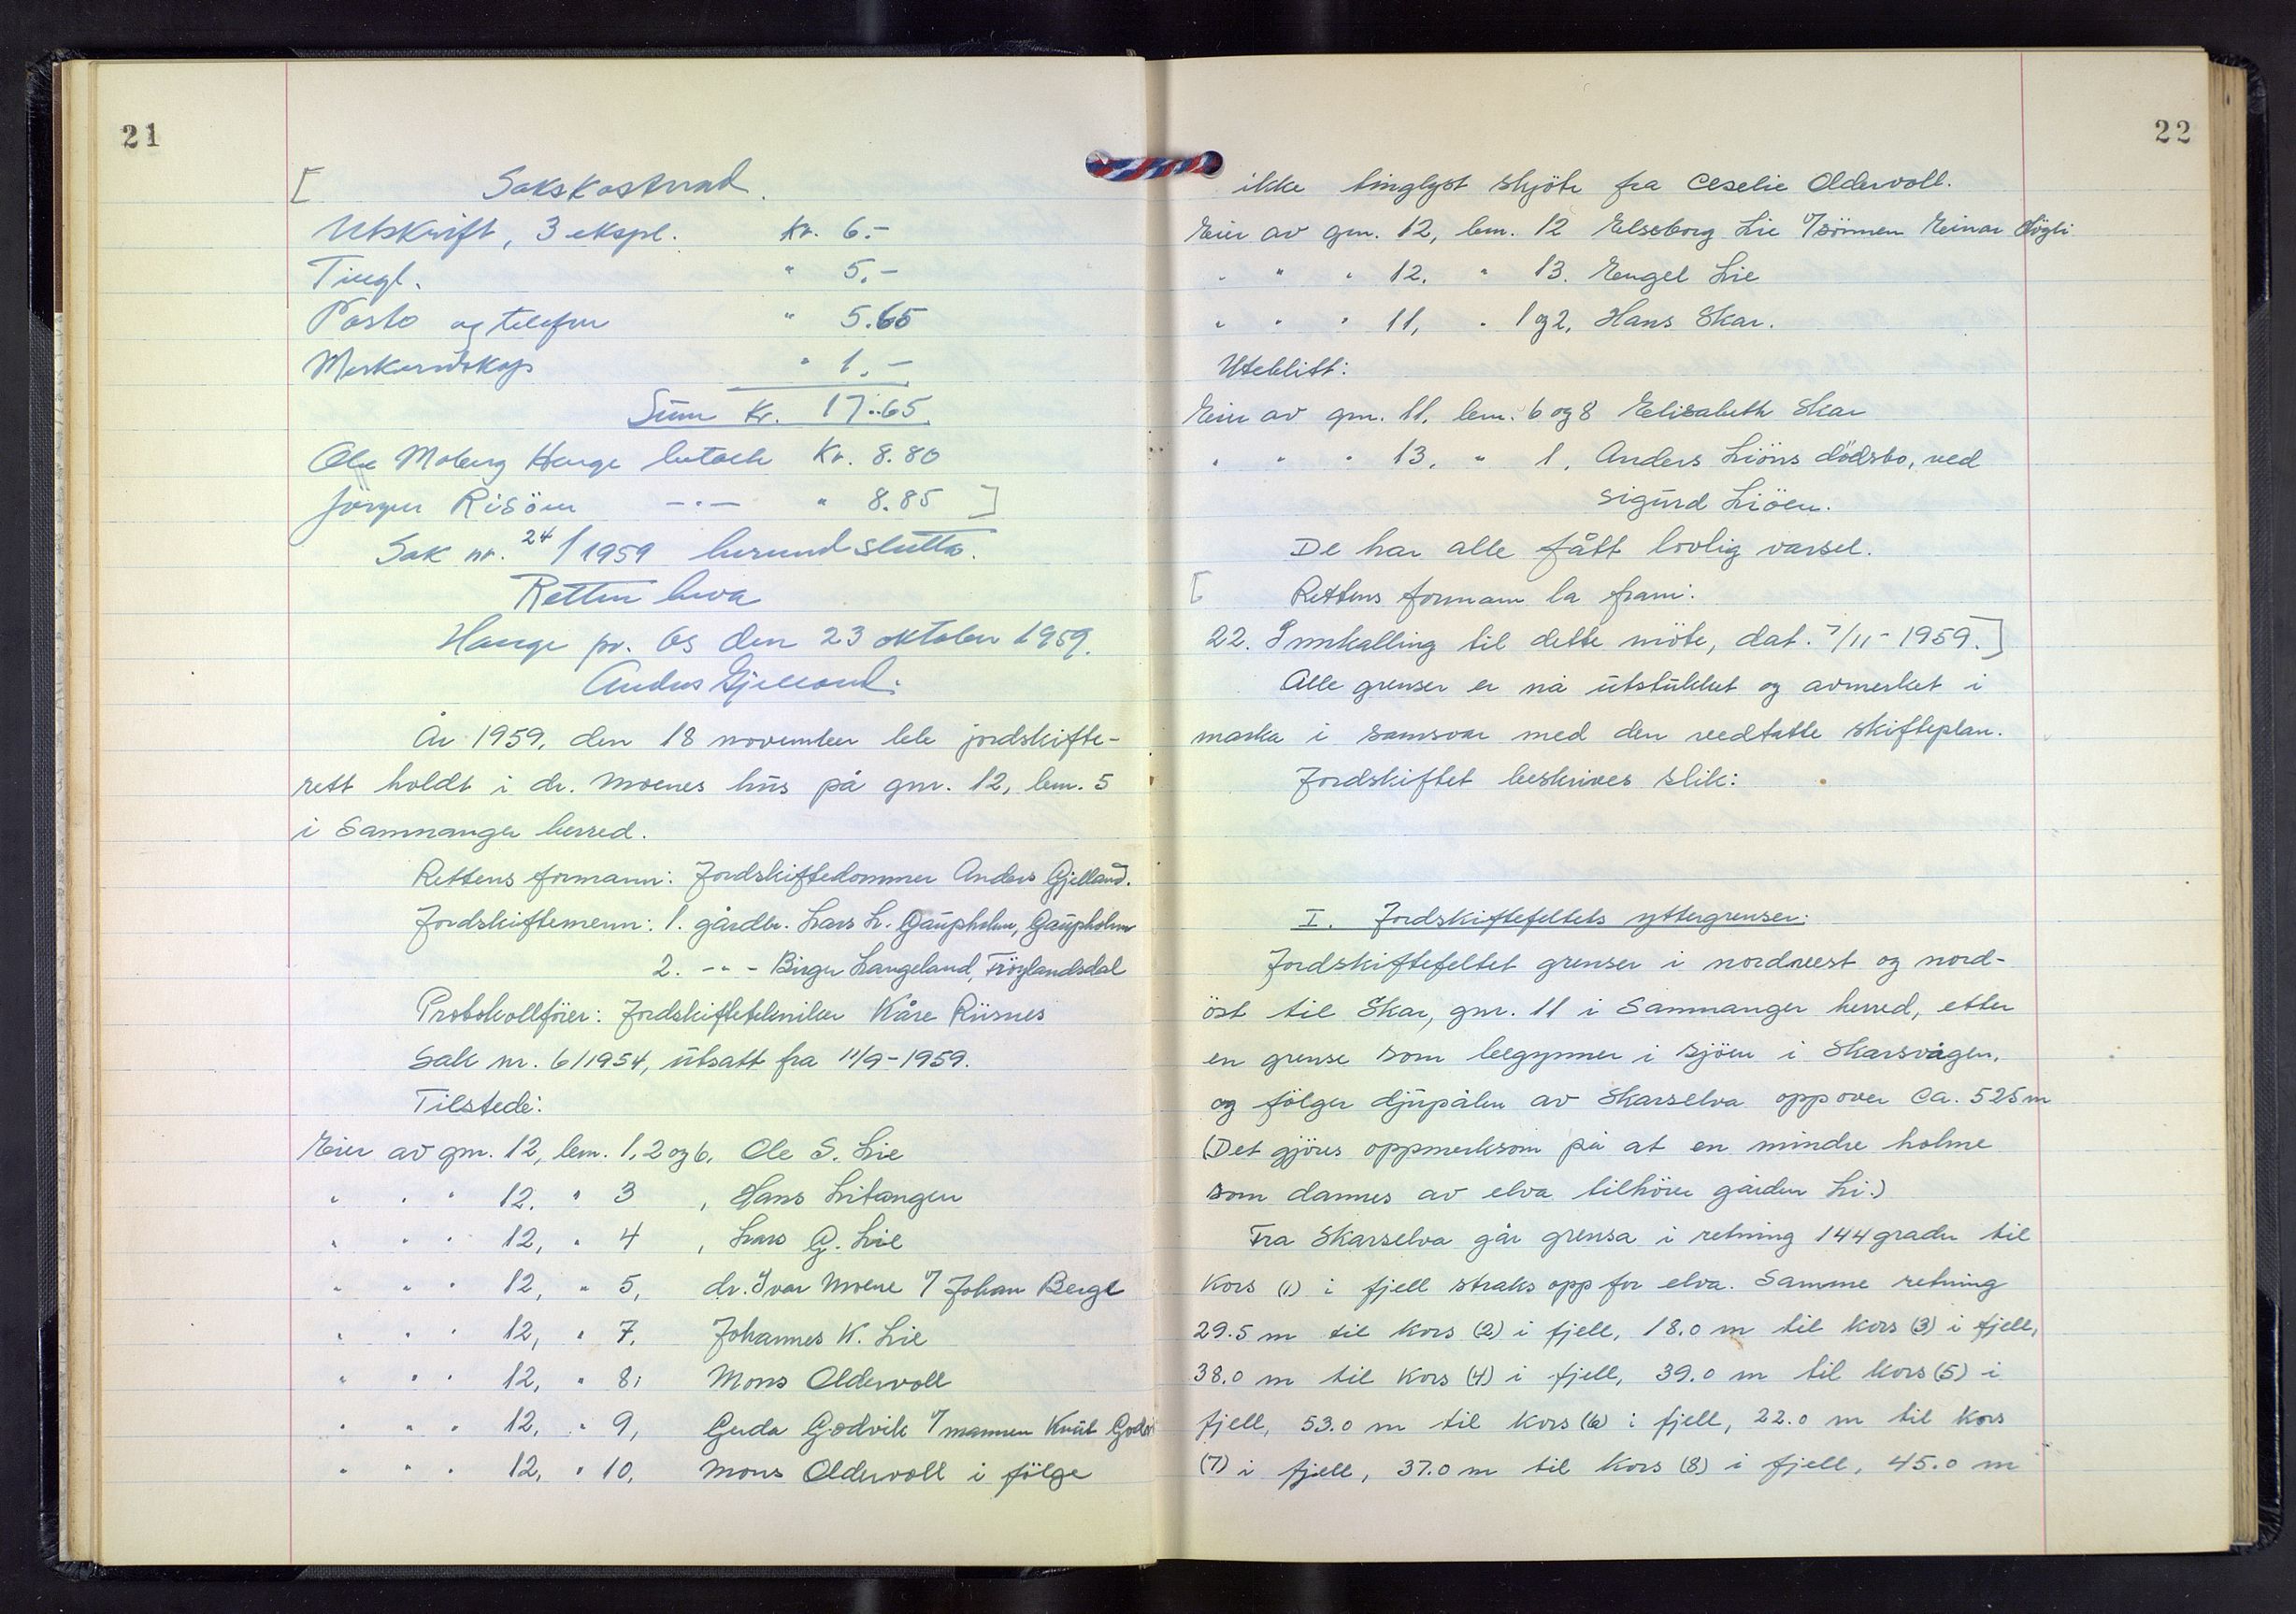 21
[ Sakskostnad.
Utskrift, 3 ekspl. Kr. 6.-
Tingl. " 5.-
Porto og telefon " 5.65
Merkereidskap " 1.-
Sum Kr. 17.65
Ole Moberg Hauge betach Kr. 8.80
Jörgen Risöen -"- " 8.85 ]
Sak nr. 24/1959 herund slutta.
Retten heva
Hauge pr. Os den 23 oktober 1959.
Anders Gjelland.
År 1959, den 18 november ble jordskifte-
rett holdt i dr. Moenes hus på gnr. 12, bnr. 5
i Samnanger herred.
Rettens formann: Jordskiftedommer Anders Gjelland.
Jordskiftemenn: 1. gårdbr. Lars L. Gaupholm, Gaupholm
2. -"- Birger Langeland, Tröylandsdal
Protokollförer: Jordskiftetekniker Kåre Riisnes
Sak nr. 6/1954, utsatt fra 11/9-1959.
Tilstede:
Eier av gnr. 12, bnr. 1, 2 og 6, Ole S. Lie
" " " 12. " 3 , Hans Litangen
" " " 12, " 4 , Lars G. Lie
" " " 12, " 5, dr. Ivar Moene v/ Johan Berge
" " " 12, " 7. Johannes K. Lie
" " " 12, " 8, Mons Oldervoll
" " " 12, " 9, Gerda Godvik v/mannen Knut
" " " 12, " 10, Mons Oldervoll i fölge
22
ikke tinglyst skjöte fra Ceselie Oldervoll.
Eier av gnr. 12, bnr. 12 Elseborg Lie v/sönnen Einar
" " " 12. " 13. Engel Lie
" " " 11, " 1 og 2, Hans Skar.
Uteblitt:
Eier av gnr. 11, bnr. 6 og 8 Elisabeth Skar
" " " 13, " 1, Anders Liöns dödsbo, ved
Sigurd Liöen.
De har alle fått lovlig varsel.
[ Rettens formann la fram:
22. Innkalling til dette möte, dat. 7/11-1959.]
Alle grenser er nå utstukket og avmerket i
marka i samsvar med den vedtatte skifteplan.
Jordskiftet beskrives slik:
I. Jordskiftefeltets yttergrenser:
Jordskiftefeltet grenser i nordvest og nord-
öst til Skar, gnr. 11 i Samnanger herred, etter
en grense som begynner i sjöen i Skarsvågen,
og fölger djupålen av Skarselva oppover ca. 525 m
(Det gjöres oppmerksom på at en mindre holme
som dannes av elva tilhörer gården Li.)
Fra Skarselva går grensa i retning 144 grader til
kors (1) i fjell straks opp for elva. Samme retning
29.5 m til kors (2) i fjell, 18.0 m til kors (3) i fjell,
38.0 m til kors (4) i fjell, 39.0 m til kors (5) i
fjell, 53.0 m til kors (6) i fjell, 22.0 m til kors
(7) i fjell, 37.0 m til kors (8) i fjell, 45.0 m